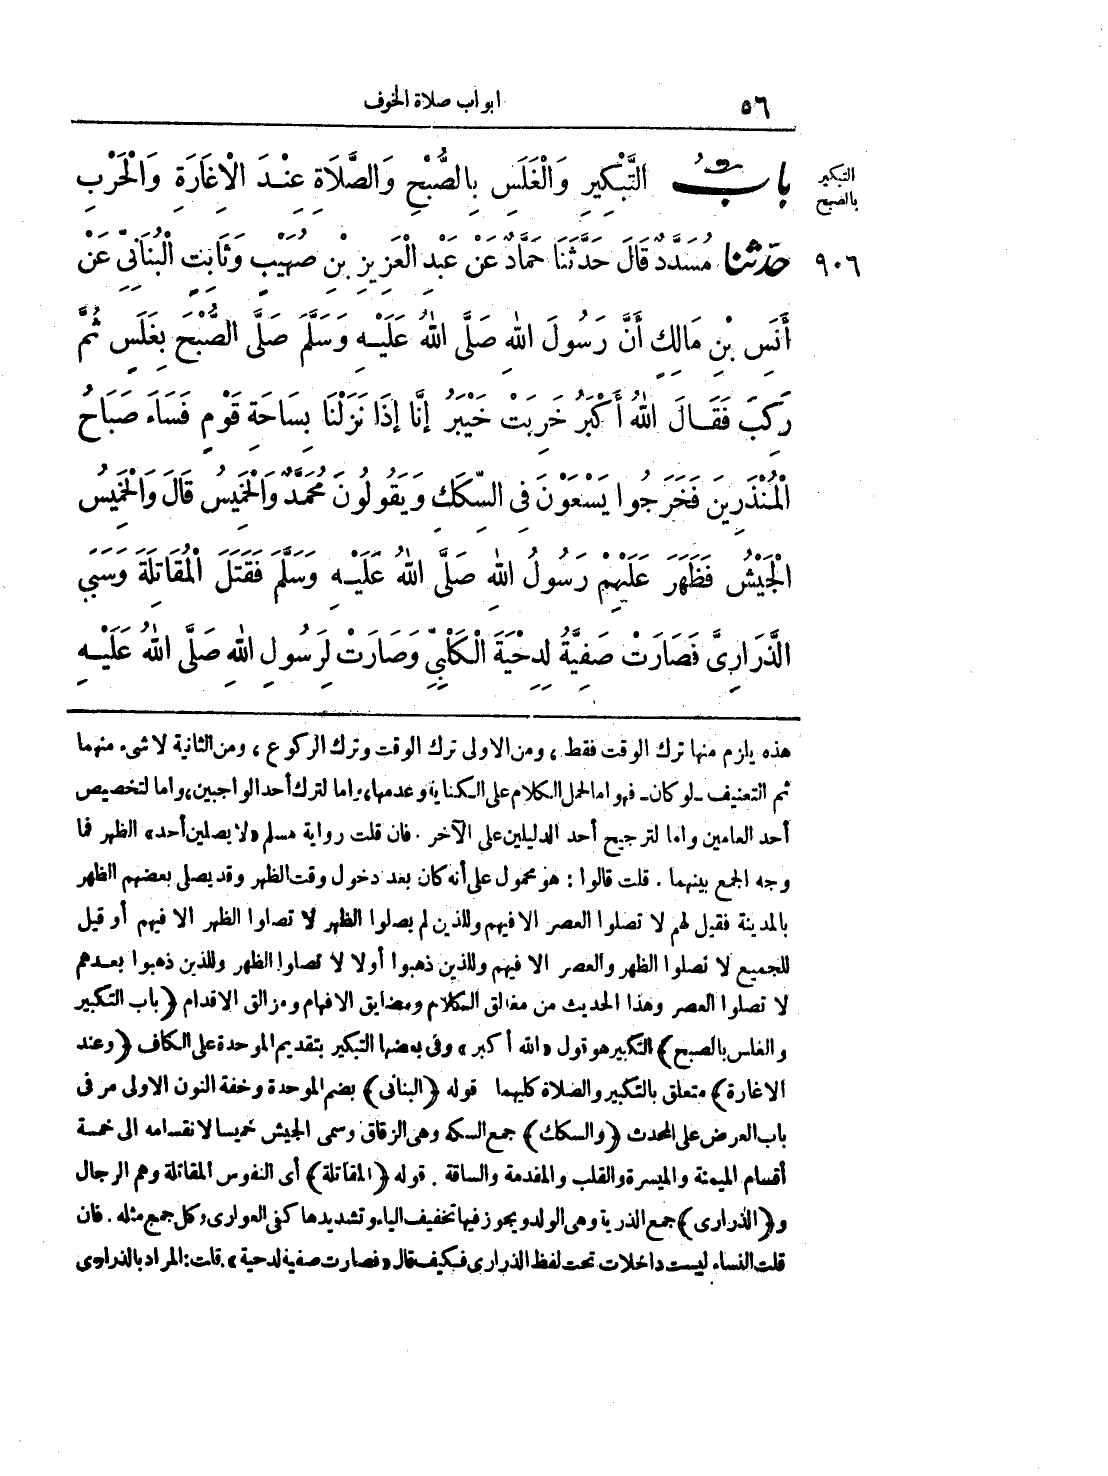 ٥٦
ابواب صلاة الخوف
باب التَّبْكِيرِ وَالْغَلَسِ بِالصُّبْحِ وَالصَّلَاةِ عِنْدَ الْاِغَارَةِ وَالْحَرْبِ
التبكير
بالصبح
٩٠٦
حدّثنا مُسَدَّدٌ قَالَ حَدَّثَنَا حَمَّادٌ عَنْ عَبْدِ الْعَزِيزِ بْنِ صُهَيْبٍ وَثَابِتٍ الْبُنَانِيِّ عَنْ
أَنَسِ بْنِ مَالِكٍ أَنَّ رَسُولَ اللهِ صَلَّى اللهُ عَلَيْهِ وَسَلَّمَ صَلَّى الصُّبْحَ بِغَلَسٍ ثُمَّ
رَكِبَ فَقَالَ اللهُ أَكْبَرُ خَرِبَتْ خَيْبَرُ إِنَّا إِذَا نَزَلْنَا بِسَاحَةِ قَوْمٍ فَسَاءَ صَبَاحُ
الْمُنْذَرِينَ فَخَرَجُوا يَسْعَوْنَ فِى السِّكَكِ وَيَقُولُونَ مُحَمَّدٌ وَالْخَمِيسُ قَالَ وَالْخَمِيسُ
الْجَيْشُ فَظَهَرَ عَلَيْهِمْ رَسُولُ اللهِ صَلَّى اللهُ عَلَيْهِ وَسَلَّمَ فَقَتَلَ الْمُقَاتِلَةَ وَسَبَى
الذَّرَارِىَّ فَصَارَتْ صَفِيَّةُ لِدِحْيَةَ الْكَلْبِيِّ وَصَارَتْ لِرَسُولِ اللهِ صَلَّى اللهُ عَلَيْهِ
هذه يلزم منها ترك الوقت فقط ، ومن الاولى ترك الوقت وترك الركوع ، ومن الثانية لا شىء منهما
ثم التعنيف ـ لو كان ـ فهو اما لحمل الكلام على الكناية وعدمها، واما لترك أحد الواجبين، واما لتخصيص
أحد العامين واما لترجيح أحد الدليلين على الآخر . فان قلت رواية مسلم «لا يصلين أحد» الظهر فما
وجه الجمع بينهما . قلت قالوا : هو محمول على أنه كان بعد دخول وقت الظهر وقد يصلى بعضهم الظهر
بالمدينة فقيل لهم لا تصلوا العصر الا فيهم وللذين لم يصلوا الظهر لا تصلوا الظهر الا فيهم أو قيل
للجميع لا تصلوا الظهر والعصر الا فيهم وللذين ذهبوا أولا لا تصلوا الظهر وللذين ذهبوا بعدهم
لا تصلوا العصر وهذا الحديث من مغالق الكلام ومضايق الافهام ومزالق الاقدام ﴿باب التكبير
والغلس بالصبح﴾ التكبير هو قول «الله أكبر» وفى بعضها التبكير بتقديم الموحدة على الكاف ﴿وعند
الاغارة﴾ متعلق بالتكبير والصلاة كليهما قوله ﴿البنانى﴾ بضم الموحدة وخفة النون الاولى مر فى
باب العرض على المحدث ﴿والسكك﴾ جمع السكة وهى الزقاق وسمى الجيش خميسا لانقسامه الى خمسة
أقسام الميمنة والميسرة والقلب والمقدمة والساقة . قوله ﴿المقاتلة﴾ أى النفوس المقاتلة وهم الرجال
و﴿الذرارى﴾ جمع الذرية وهى الولد ويجوز فيها تخفيف الياء وتشديدها كفى العوارى وكل جمع مثله . فان
قلت النساء ليست داخلات تحت لفظ الذرارى فكيف قال «فصارت صفية لدحية» . قلت: المراد بالذراوى